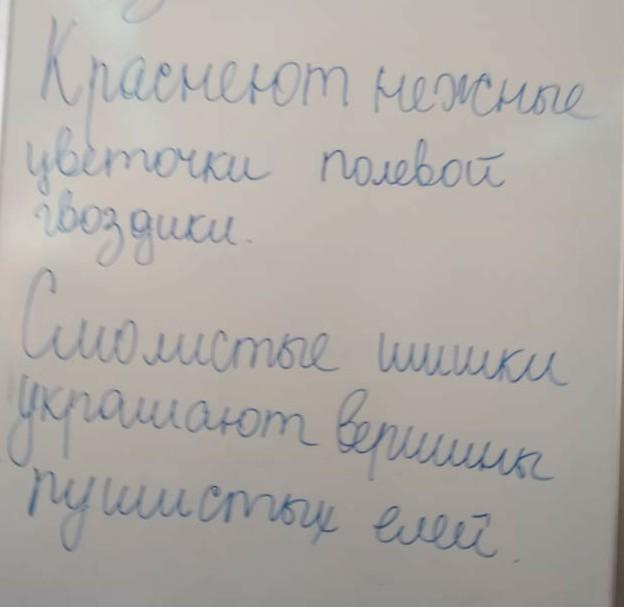 Краснеют нежные
цветочки полевой
гвоздики.
Смолистые шишки
украшают вершины
пушистых елей.